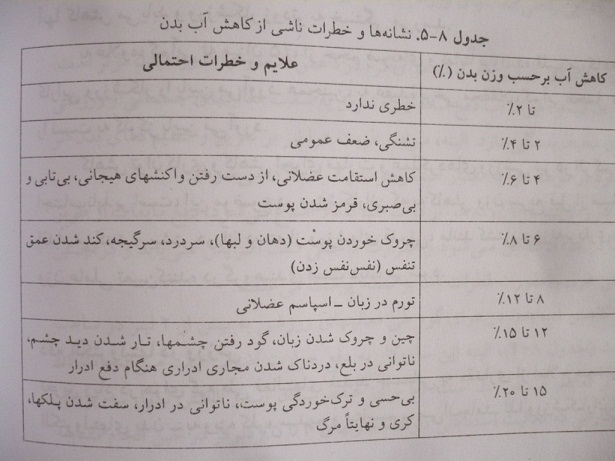 جدول ۸-۵. نشانه‌ها و خطرات ناشی از کاهش آب بدن
کاهش آب برحسب وزن بدن (٪) علایم و خطرات احتمالی
تا ۲٪ خطری ندارد
۲ تا ۴٪ تشنگی، ضعف عمومی
۴ تا ۶٪ کاهش استقامت عضلانی، از دست رفتن واکنشهای هیجانی، بی‌تابی و
بی‌صبری، قرمز شدن پوست
۶ تا ۸٪ چروک خوردن پوست (دهان و لبها)، سردرد، سرگیجه، کند شدن عمق
تنفس (نفس‌نفس زدن)
۸ تا ۱۲٪ تورم در زبان – اسپاسم عضلانی
۱۲ تا ۱۵٪ چین و چروک شدن زبان، گود رفتن چشمها، تار شدن دید چشم،
ناتوانی در بلع، دردناک شدن مجاری ادراری هنگام دفع ادرار
۱۵ تا ۲۰٪ بی‌حسی و ترک‌خوردگی پوست، ناتوانی در ادرار، سفت شدن پلکها،
کری و نهایتاً مرگ